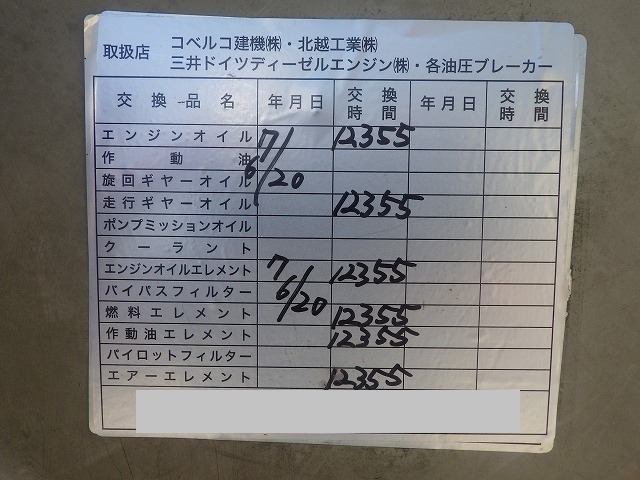 取扱店 コベルコ建機㈱・北越工業㈱
三井ドイツディーゼルエンジン㈱・各油圧ブレーカー
交換品名 年月日 交換時間 年月日 交換時間
エンジンオイル 7/6/20 12355
作動油
旋回ギヤーオイル
走行ギヤーオイル 12355
ポンプミッションオイル
クーラント
エンジンオイルエレメント 7/6/20 12355
バイパスフィルター
燃料エレメント 12355
作動油エレメント 12355
パイロットフィルター
エアーエレメント 12355